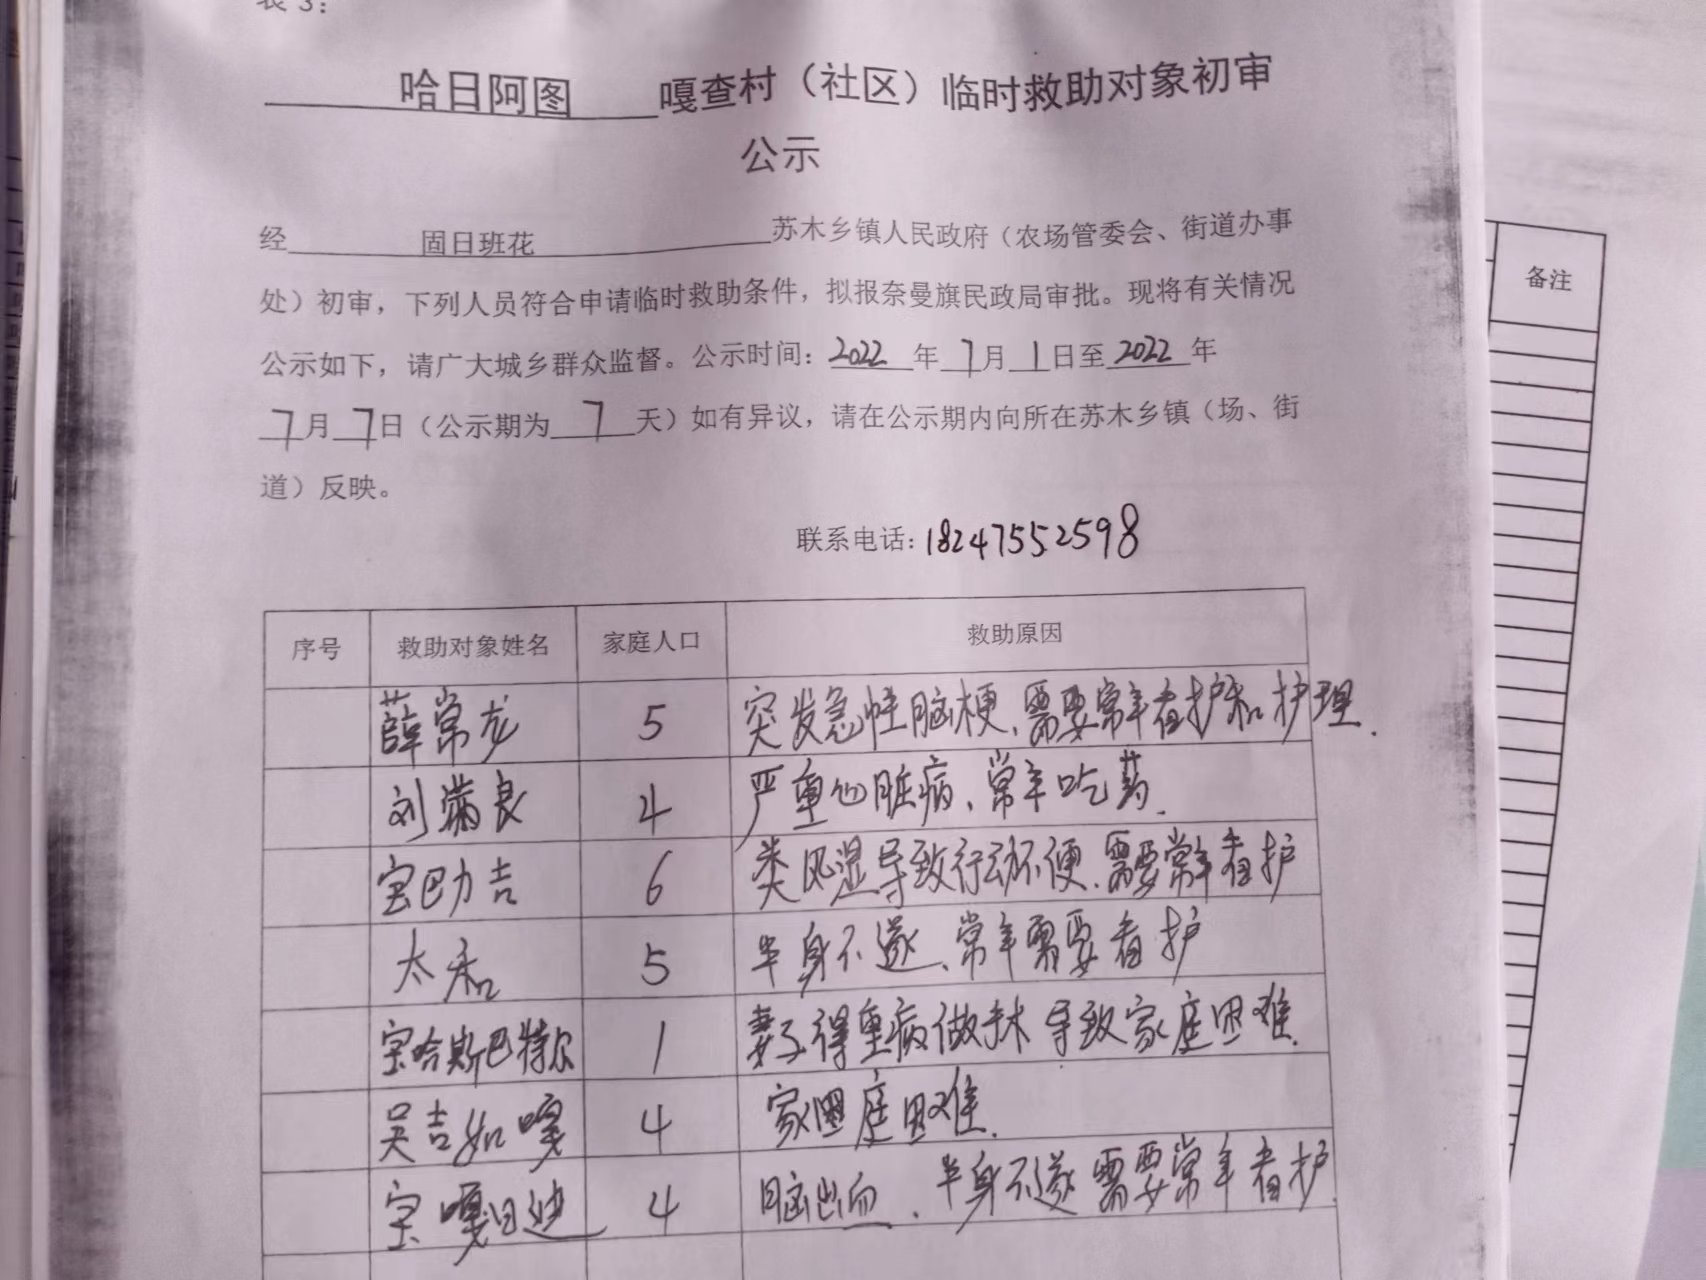 表3:
哈日阿图 嘎查村（社区）临时救助对象初审
公示
经 固日班花 苏木乡镇人民政府（农场管委会、街道办事
处）初审，下列人员符合申请临时救助条件，拟报奈曼旗民政局审批。现将有关情况
公示如下，请广大城乡群众监督。公示时间：2022 年 7月 1日至 2022 年
7月 7日（公示期为 7 天）如有异议，请在公示期内向所在苏木乡镇（场、街
道）反映。
联系电话：18247552598
备注
序号 救助对象姓名 家庭人口 救助原因
薛常龙 5 突发急性脑梗、需要常年看护和护理.
刘满良 4 严重心脏病、常年吃药.
宝巴力吉 6 类风湿导致行动不便、需要常年看护
太和 5 半身不遂、常年需要看护
宝哈斯巴特尔 1 妻子得重病做手术 导致家庭困难.
吴吉如嘎 4 家庭困难.
宝嘎日迪 4 脑出血、半身不遂需要常年看护.